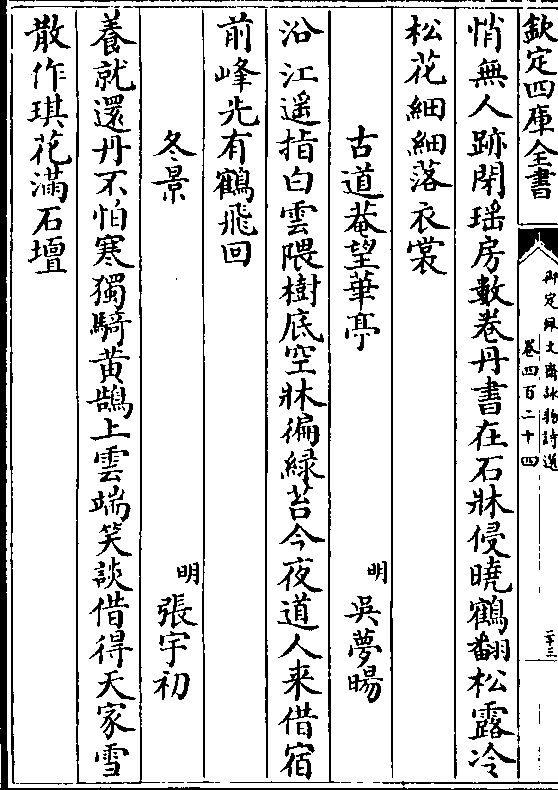 欽定四庫全書
御定佩文齋詠物詩選
卷四百二十四
二十三
悄無人跡閉瑶房數卷丹書在石牀侵曉鶴翻松露冷
松花細細落衣裳
古道菴望華亭
明 吳夢暘
沿江遥指白雲隈樹底空牀徧緑苔今夜道人来借宿
前峰先有鶴飛回
冬景
明 張宇初
養就還丹不怕寒獨騎黄鵠上雲端笑談借得天家雪
散作琪花滿石壇